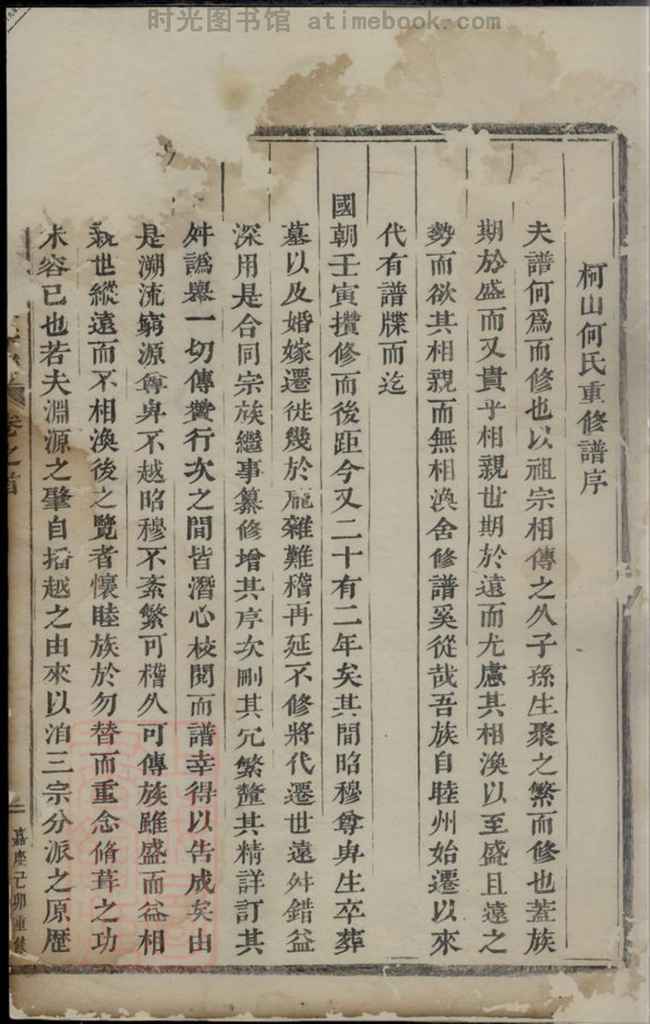 时光图书馆 atimebook.com
柯山何氏重修譜序
夫譜何爲而修也以祖宗相傳之久子孫生聚之繁而修也蓋族
期於盛而又貴乎相親世期於遠而尤慮其相渙以至盛且遠之
勢而欲其相親而無相渙舍修譜奚從哉吾族自睦州始遷以來
代有譜牒而迄
國朝壬寅攢修而後距今又二十有二年矣其間昭穆尊卑生卒葬
墓以及婚嫁遷徙幾於龐雜難稽再延不修將代遷世遠舛錯益
深用是合同宗族繼事纂修增其序次刪其冗繁釐其精詳訂其
舛譌舉一切傳贊行次之間皆潛心校閱而譜幸得以告成矣由
是溯流窮源尊卑不越昭穆不紊繁可稽久可傳族雖盛而益相
親世縱遠而不相渙後之覽者懷睦族於勿替而重念脩葺之功
未容已也若夫淵源之肇自播越之由來以洎三宗分派之原歷
卷之首
二
嘉慶己卯重鐫